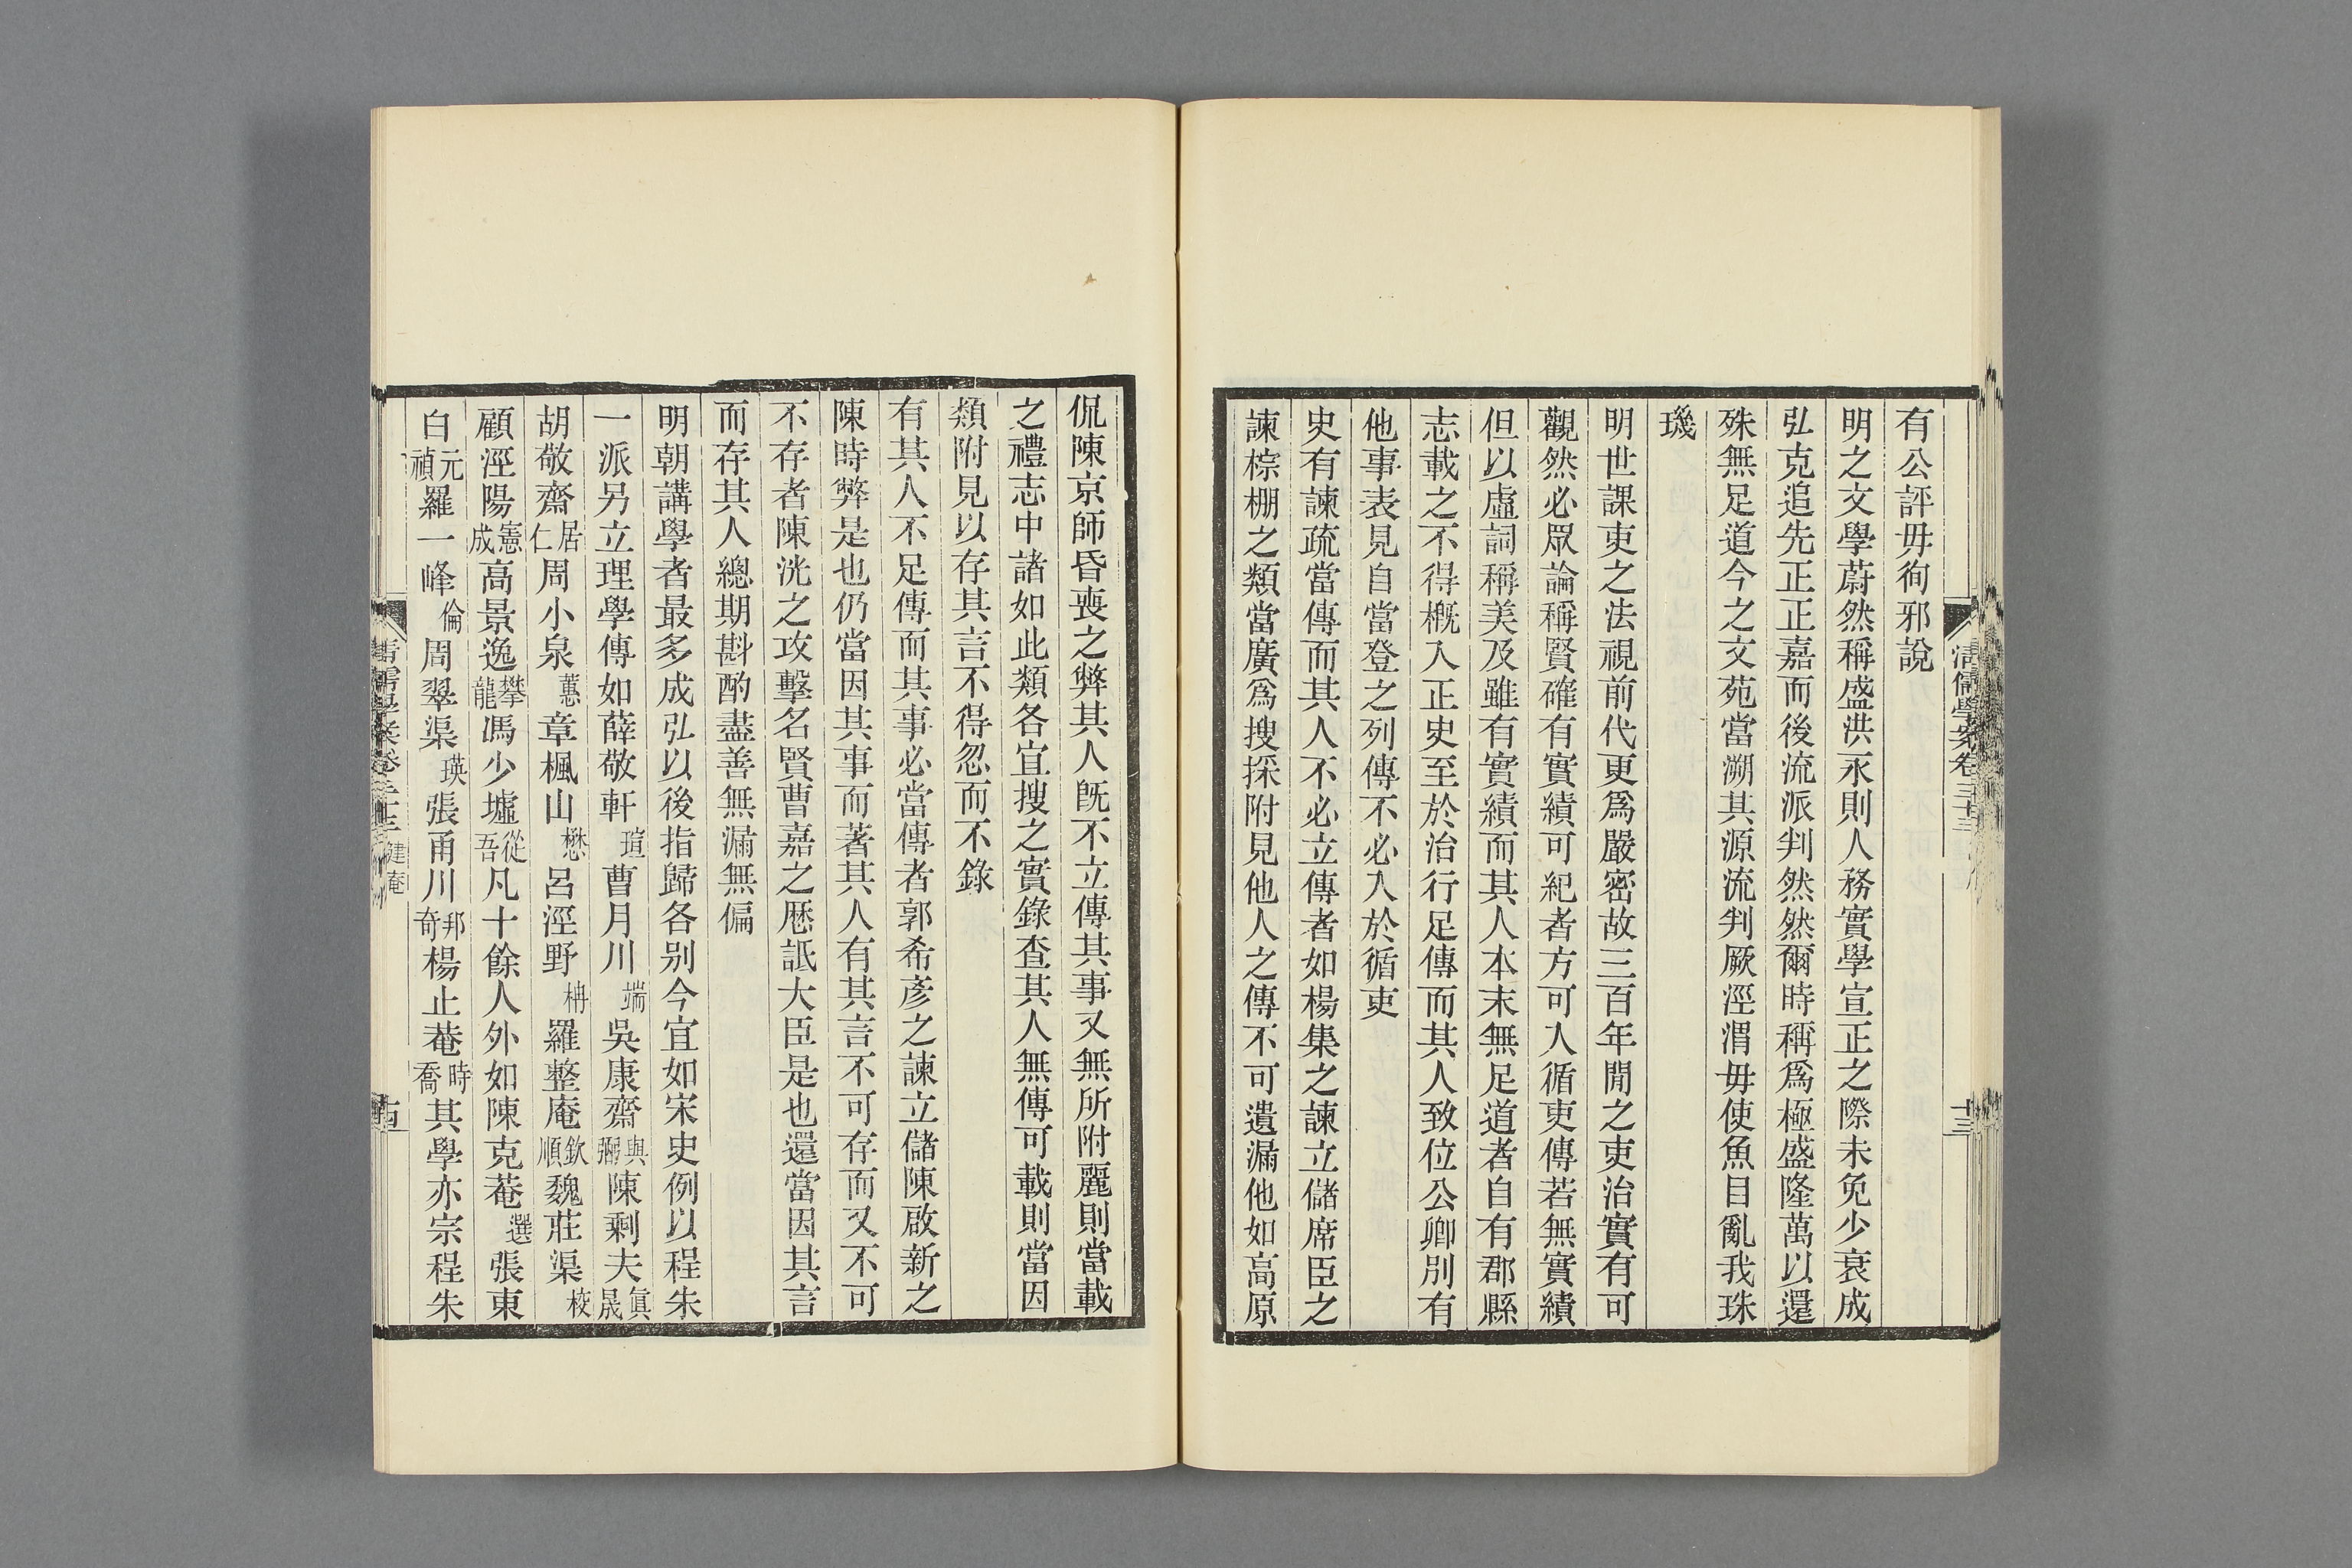 有公評毋徇邪說
明之文學蔚然稱盛洪永則人務實學宣正之際未免少衰成
弘克追先正正嘉而後流派判然然爾時稱爲極盛隆萬以還
殊無足道今之文苑當溯其源流判厥涇渭毋使魚目亂我珠
璣
明世課吏之法視前代更爲嚴密故三百年閒之吏治實有可
觀然必眾論稱賢確有實績可紀者方可入循吏傳若無實績
但以虛詞稱美及雖有實績而其人本末無足道者自有郡縣
志載之不得概入正史至於治行足傳而其人致位公卿別有
他事表見自當登之列傳不必入於循吏
史有諫疏當傳而其人不必立傳者如楊集之諫立儲席臣之
諫棕棚之類當廣爲搜採附見他人之傳不可遺漏他如高原
侃陳京師昏喪之弊其人旣不立傳其事又無所附麗則當載
之禮志中諸如此類各宜搜之實錄查其人無傳可載則當因
類附見以存其言不得忽而不錄
有其人不足傳而其事必當傳者郭希彥之諫立儲陳啟新之
陳時弊是也仍當因其事而著其人有其言不可存而又不可
不存者陳洸之攻擊名賢曹嘉之歷詆大臣是也還當因其言
而存其人總期斟酌盡善無漏無偏
明朝講學者最多成弘以後指歸各別今宜如宋史例以程朱
一派另立理學傳如薛敬軒瑄曹月川端吳康齋與弼陳剩夫眞晟
胡敬齋居仁周小泉蕙章楓山懋呂涇野柟羅整庵欽順魏莊渠校
顧涇陽憲成高景逸攀龍馮少墟從吾凡十餘人外如陳克菴選張東
白元禎羅一峰倫周翠渠瑛張甬川邦奇楊止菴時喬其學亦宗程朱
清儒學案卷三十三
十三
清儒學案卷三十三 健庵
十四